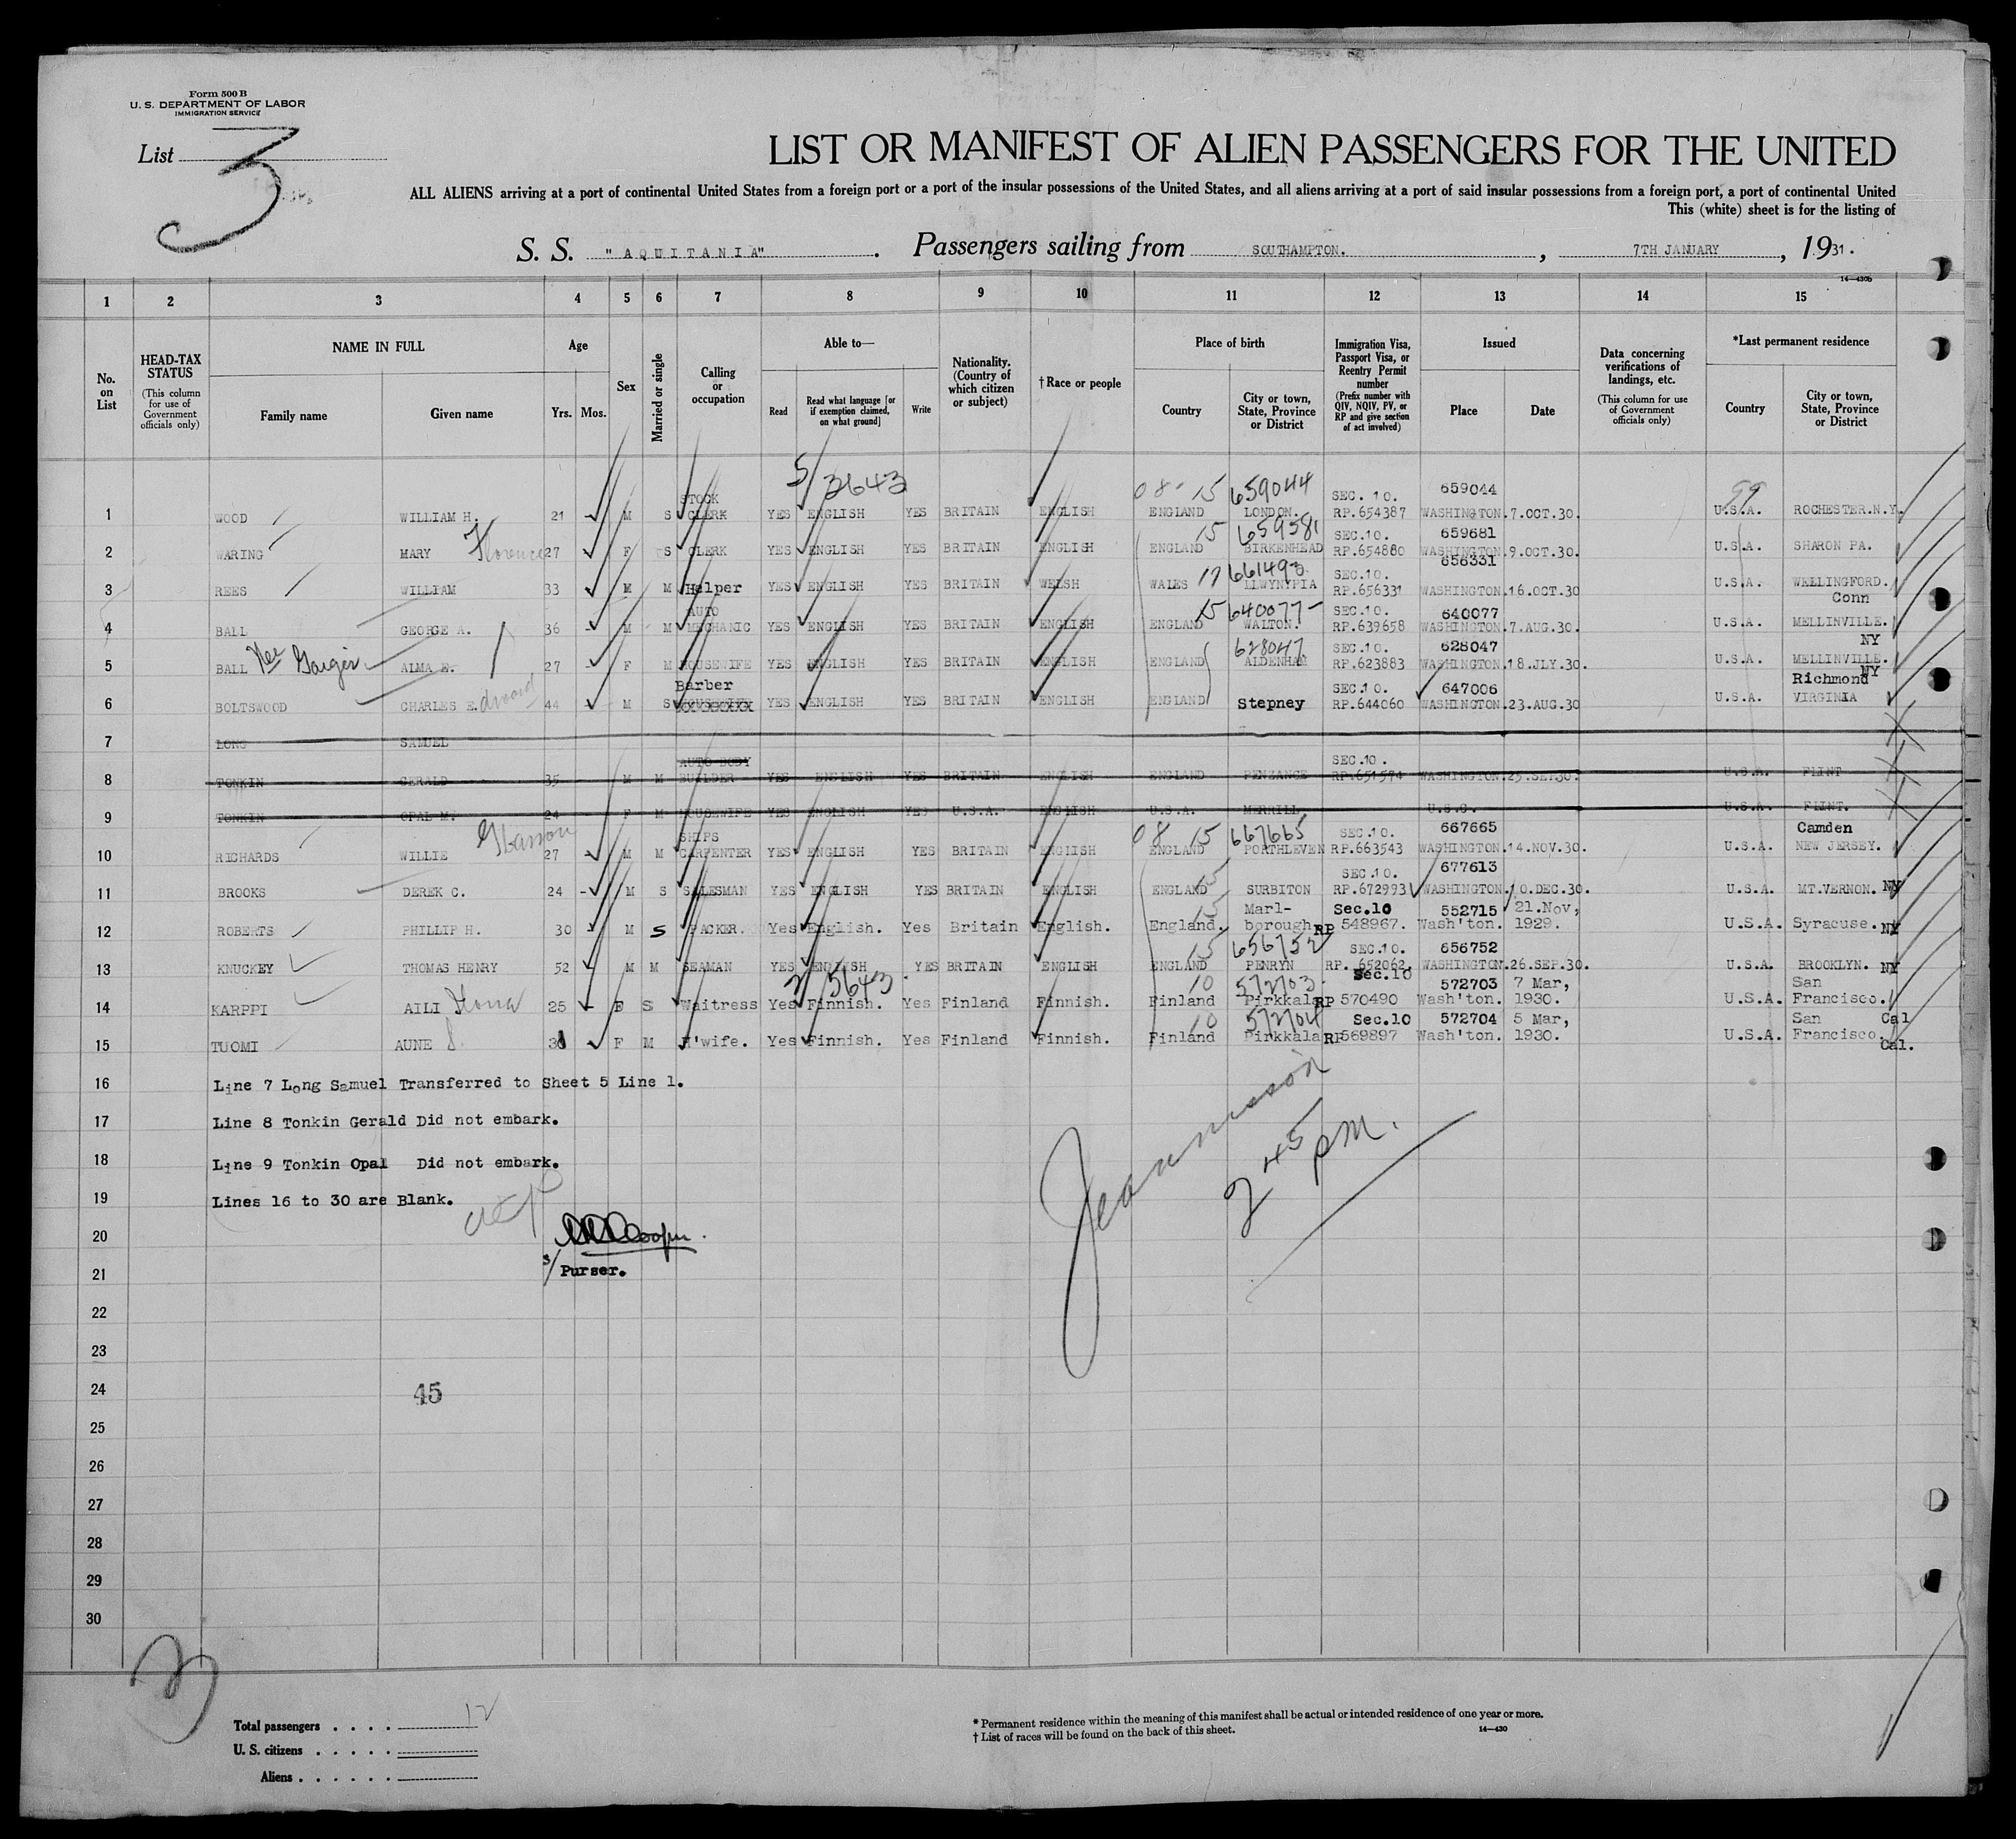 Form 500 B
U. S. DEPARTMENT OF LABOR
IMMIGRATION SERVICE
List 3
LIST OR MANIFEST OF ALIEN PASSENGERS FOR THE UNITED
ALL ALIENS arriving at a port of continental United States from a foreign port or a port of the insular possessions of the United States, and all aliens arriving at a port of said insular possessions from a foreign port, a port of continental United
This (white) sheet is for the listing of
S. S. "AQUITANIA". Passengers sailing from SOUTHAMPTON. , 7TH JANUARY , 1931.
14—430b
1 2 3 4 5 6 7 8 9 10 11 12 13 14 15
No. on List
HEAD-TAX STATUS (This column for use of Government officials only)
NAME IN FULL Family name Given name
Age Yrs. Mos.
Sex
Married or single
Calling or occupation
Able to— Read Read what language [or if exemption claimed, on what ground] Write
Nationality. (Country of which citizen or subject)
† Race or people
Place of birth Country City or town, State, Province or District
Immigration Visa, Passport Visa, or Reentry Permit number (Prefix number with QIV, NQIV, PV, or RP and give section of act involved)
Issued Place Date
Data concerning verifications of landings, etc. (This column for use of Government officials only)
*Last permanent residence Country City or town, State, Province or District
5/3643 08- 15 659044 SEC. 10. 659044 99
1 WOOD WILLIAM H. 21 M S STOCK CLERK YES ENGLISH YES BRITAIN ENGLISH ENGLAND LONDON. RP.654387 WASHINGTON.7.OCT.30. U.S.A. ROCHESTER.N.Y.
15 659581 SEC.10. 659681
2 WARING MARY Florence 27 F S CLERK YES ENGLISH YES BRITAIN ENGLISH ENGLAND BIRKENHEAD RP.654880 WASHINGTON.9.OCT.30. U.S.A. SHARON PA.
17 661490 SEC.10. 658331
3 REES WILLIAM 33 M M Helper YES ENGLISH YES BRITAIN WELSH WALES LLWYNYPIA RP.656331 WASHINGTON.16.OCT.30 U.S.A. WELLINGFORD. Conn
15 640077- SEC.10. 640077
4 BALL GEORGE A. 36 M M AUTO MECHANIC YES ENGLISH YES BRITAIN ENGLISH ENGLAND WALTON. RP.639658 WASHINGTON.7.AUG.30. U.S.A. MELLINVILLE. NY
628047 SEC.10. 628047
5 BALL Nee ALMA E. 27 F M HOUSEWIFE YES ENGLISH YES BRITAIN ENGLISH ENGLAND ALDENHAM RP.623883 WASHINGTON.18.JLY.30. U.S.A. MELLINVILLE. NY
Barber SEC.10. 647006 Richmond
6 BOLTSWOOD CHARLES E. dward 44 M S XXXXXXXX YES ENGLISH YES BRITAIN ENGLISH ENGLAND Stepney RP.644060 WASHINGTON.23.AUG.30 U.S.A. VIRGINIA
7 LONG SAMUEL
AUTO BODY SEC.10.
8 TONKIN GERALD 35 M M BUILDER YES ENGLISH YES BRITAIN ENGLISH ENGLAND PENZANCE RP.651574 WASHINGTON.25.SEP.30. U.S.A. FLINT
9 TONKIN OPAL M. 24 F M HOUSEWIFE YES ENGLISH YES U.S.A. ENGLISH U.S.A. MERRILL U.S.C. U.S.A. FLINT.
SHIPS 08 15 667665 SEC.10. 667665 Camden
10 RICHARDS WILLIE 27 M M CARPENTER YES ENGLISH YES BRITAIN ENGLISH ENGLAND PORTHLEVEN RP.663543 WASHINGTON.14.NOV.30. U.S.A. NEW JERSEY.
15 SEC.10. 677613
11 BROOKS DEREK C. 24 M S SALESMAN YES ENGLISH YES BRITAIN ENGLISH ENGLAND SURBITON RP.672993 WASHINGTON.10.DEC.30. U.S.A. MT.VERNON. NY
15 Marl- Sec.10 552715 21.Nov,
12 ROBERTS PHILLIP H. 30 M S PACKER. Yes English. Yes Britain English. England. borough RP 548967. Wash'ton. 1929. U.S.A. Syracuse. NY
15 656752 SEC.10. 656752
13 KNUCKEY THOMAS HENRY 52 M M SEAMAN YES ENGLISH YES BRITAIN ENGLISH ENGLAND PENRYN RP. 652062. WASHINGTON.26.SEP.30. U.S.A. BROOKLYN. NY
2/5643 10 572703. Sec.10 572703 7 Mar, San
14 KARPPI AILI 25 F S Waitress Yes Finnish. Yes Finland Finnish. Finland Pirkkala RP 570490 Wash'ton. 1930. U.S.A. Francisco. Cal
10 572704 Sec.10 572704 5 Mar, San
15 TUOMI AUNE 30 F M H'wife. Yes Finnish. Yes Finland Finnish. Finland Pirkkala RP 569897 Wash'ton. 1930. U.S.A. Francisco. Cal.
16 Line 7 Long Samuel Transferred to Sheet 5 Line 1.
17 Line 8 Tonkin Gerald Did not embark.
18 Line 9 Tonkin Opal Did not embark.
19 Lines 16 to 30 are Blank.
2 45 pm.
20
21 s/ Purser.
22
23
24 45
25
26
27
28
29
30
3
Total passengers . . . . 12
U. S. citizens . . . . .
Aliens . . . . . .
* Permanent residence within the meaning of this manifest shall be actual or intended residence of one year or more.
† List of races will be found on the back of this sheet.
14—430